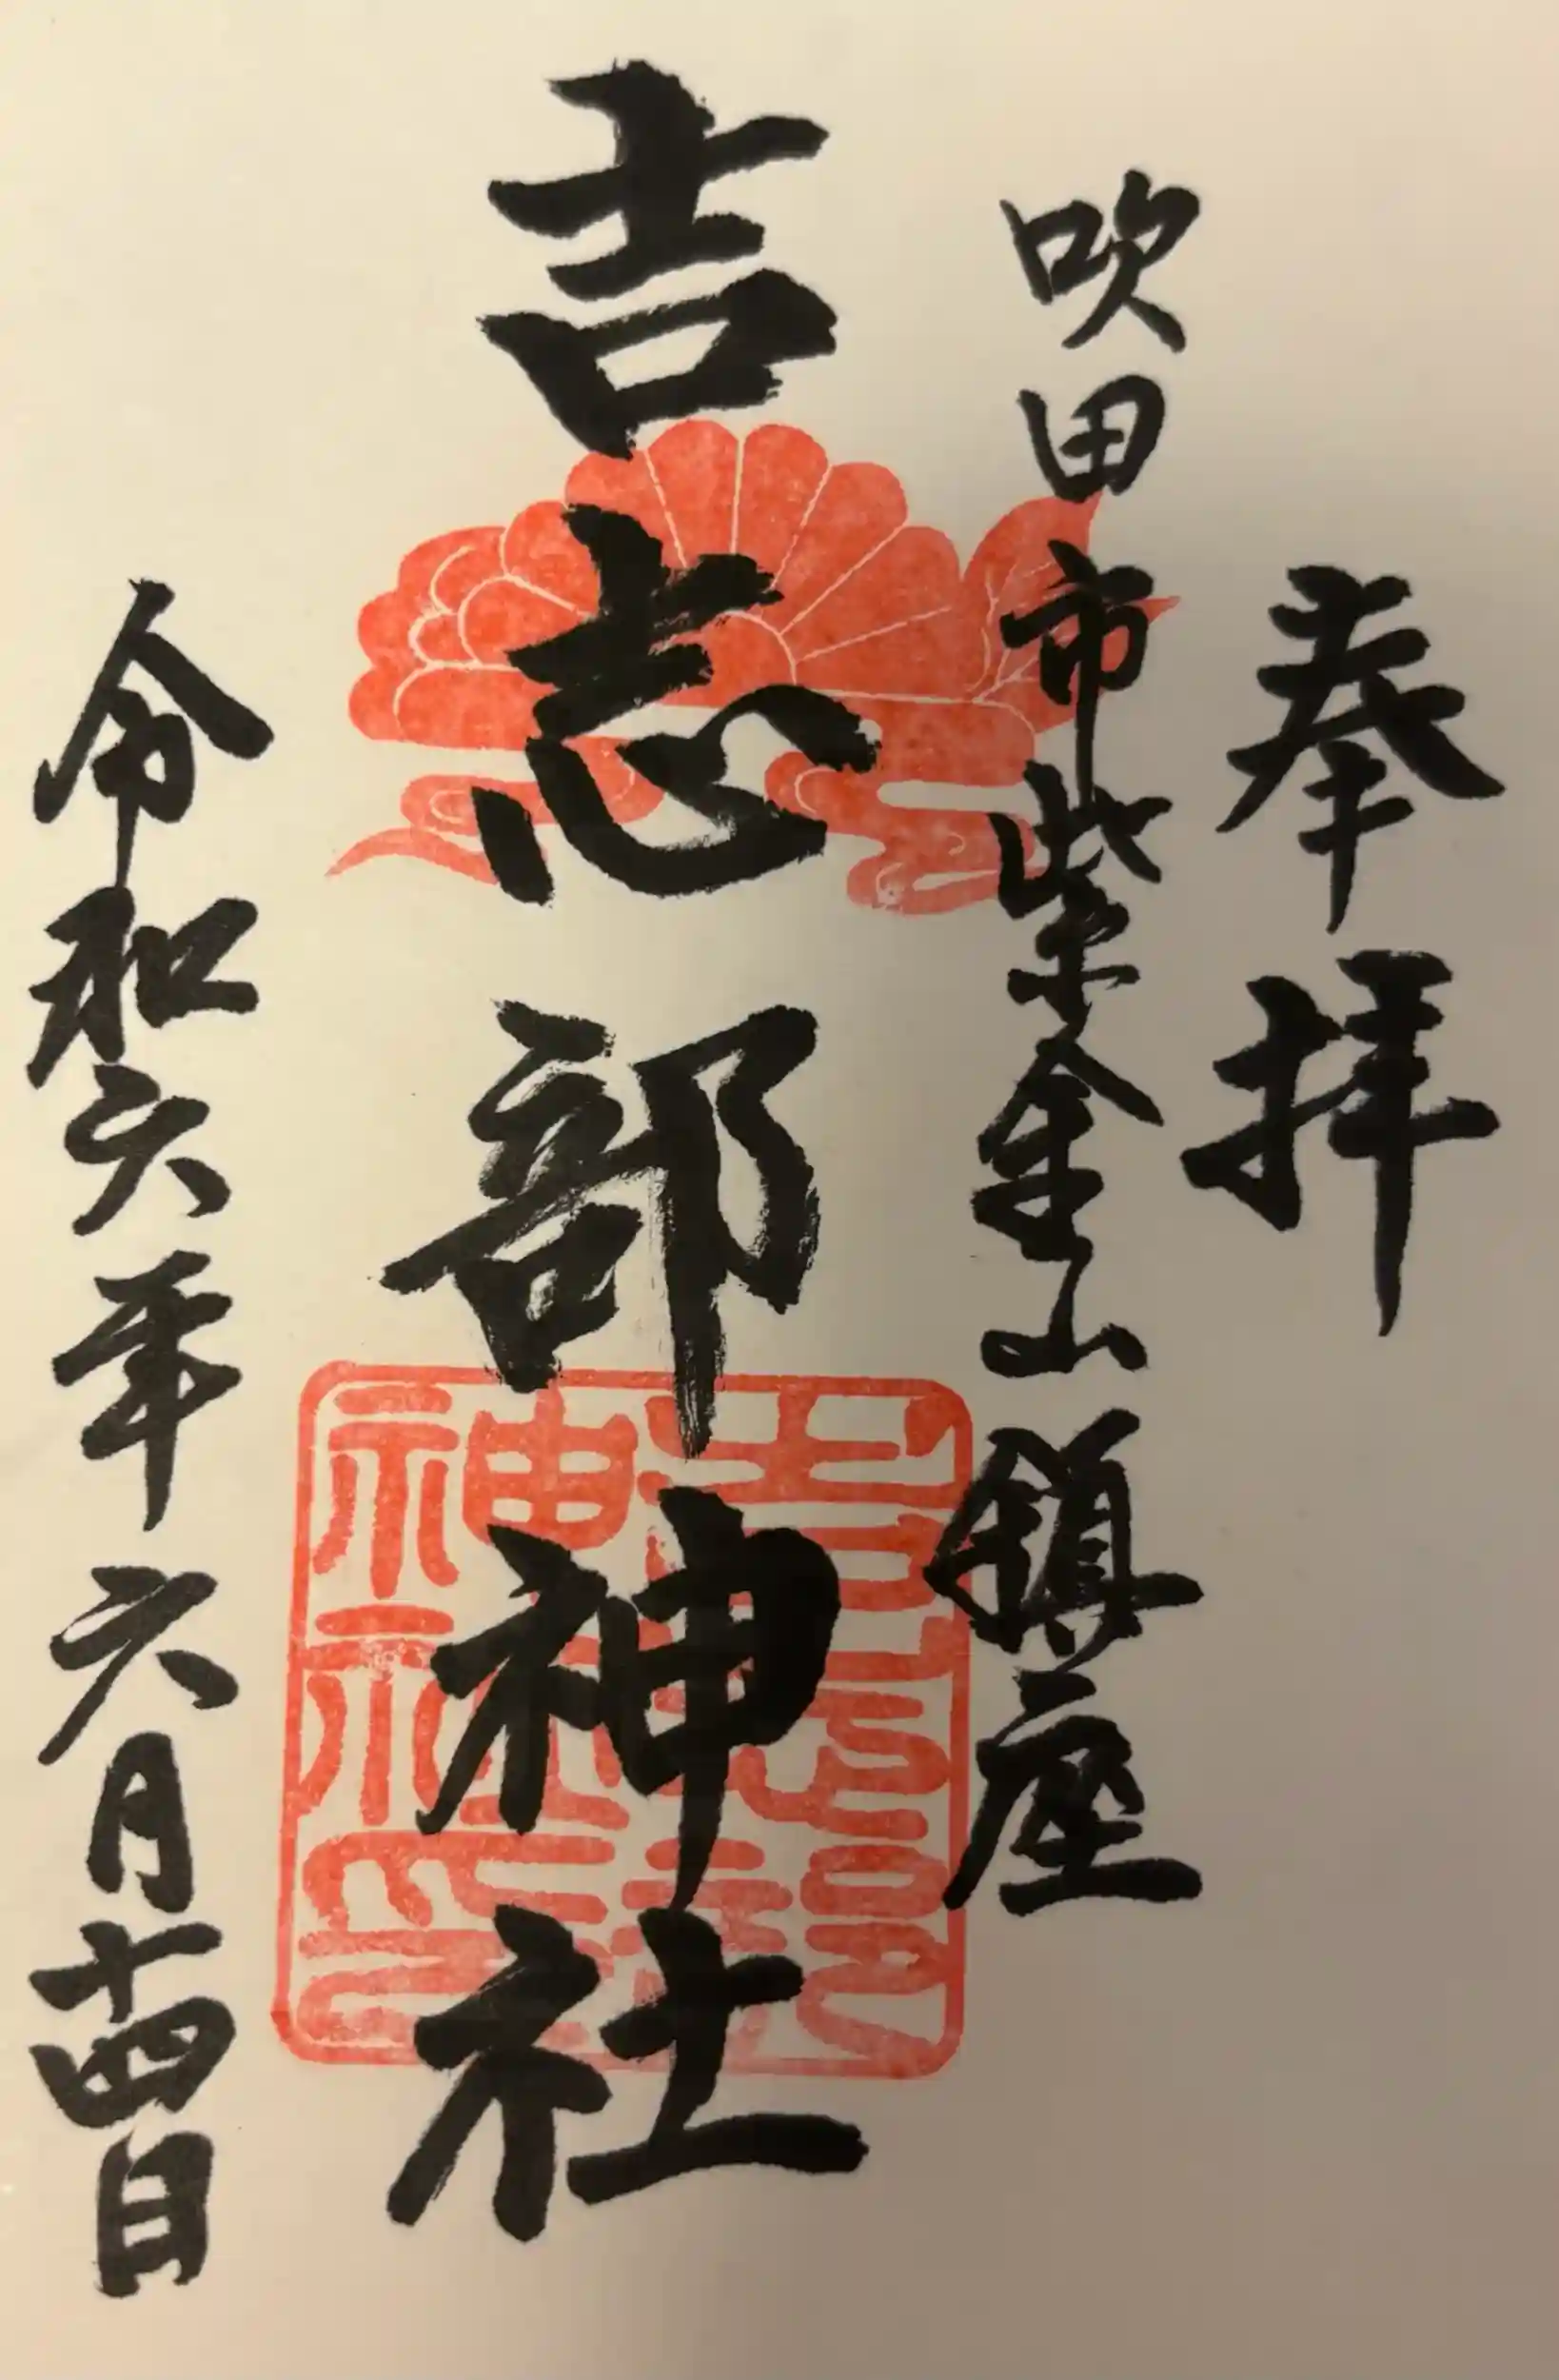 奉拝
吹田市紫金山鎮座
吉志部神社
吉志部神社印
令和六年六月十四日